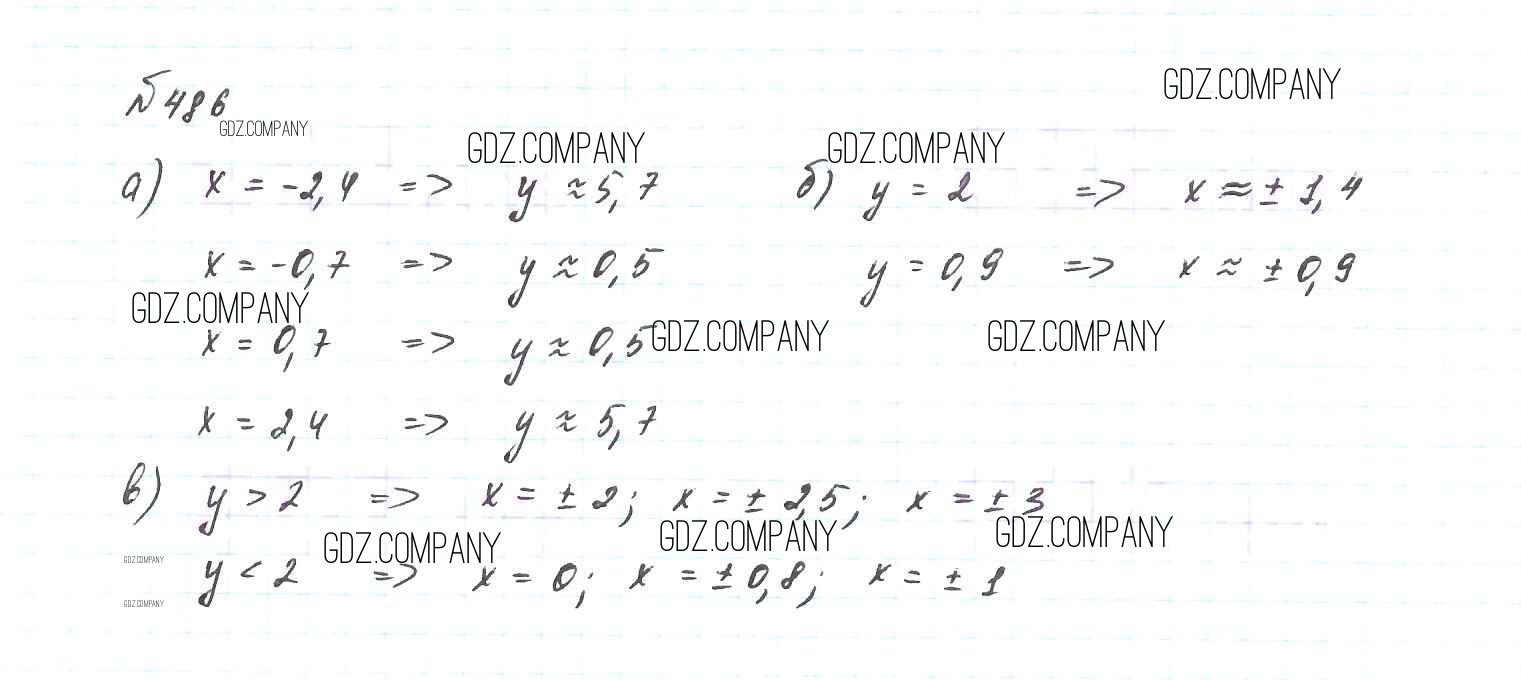 GDZ.COMPANY
№486
GDZ.COMPANY
GDZ.COMPANY GDZ.COMPANY
а) x = -2,4 => y ≈ 5,7 б) y = 2 => x ≈ ± 1,4
x = -0,7 => y ≈ 0,5 y = 0,9 => x ≈ ± 0,9
GDZ.COMPANY
x = 0,7 => y ≈ 0,5 GDZ.COMPANY GDZ.COMPANY
x = 2,4 => y ≈ 5,7
в) y > 2 => x = ± 2; x = ± 2,5; x = ± 3
GDZ.COMPANY GDZ.COMPANY GDZ.COMPANY
GDZ.COMPANY
y < 2 => x = 0; x = ± 0,8; x = ± 1
GDZ.COMPANY